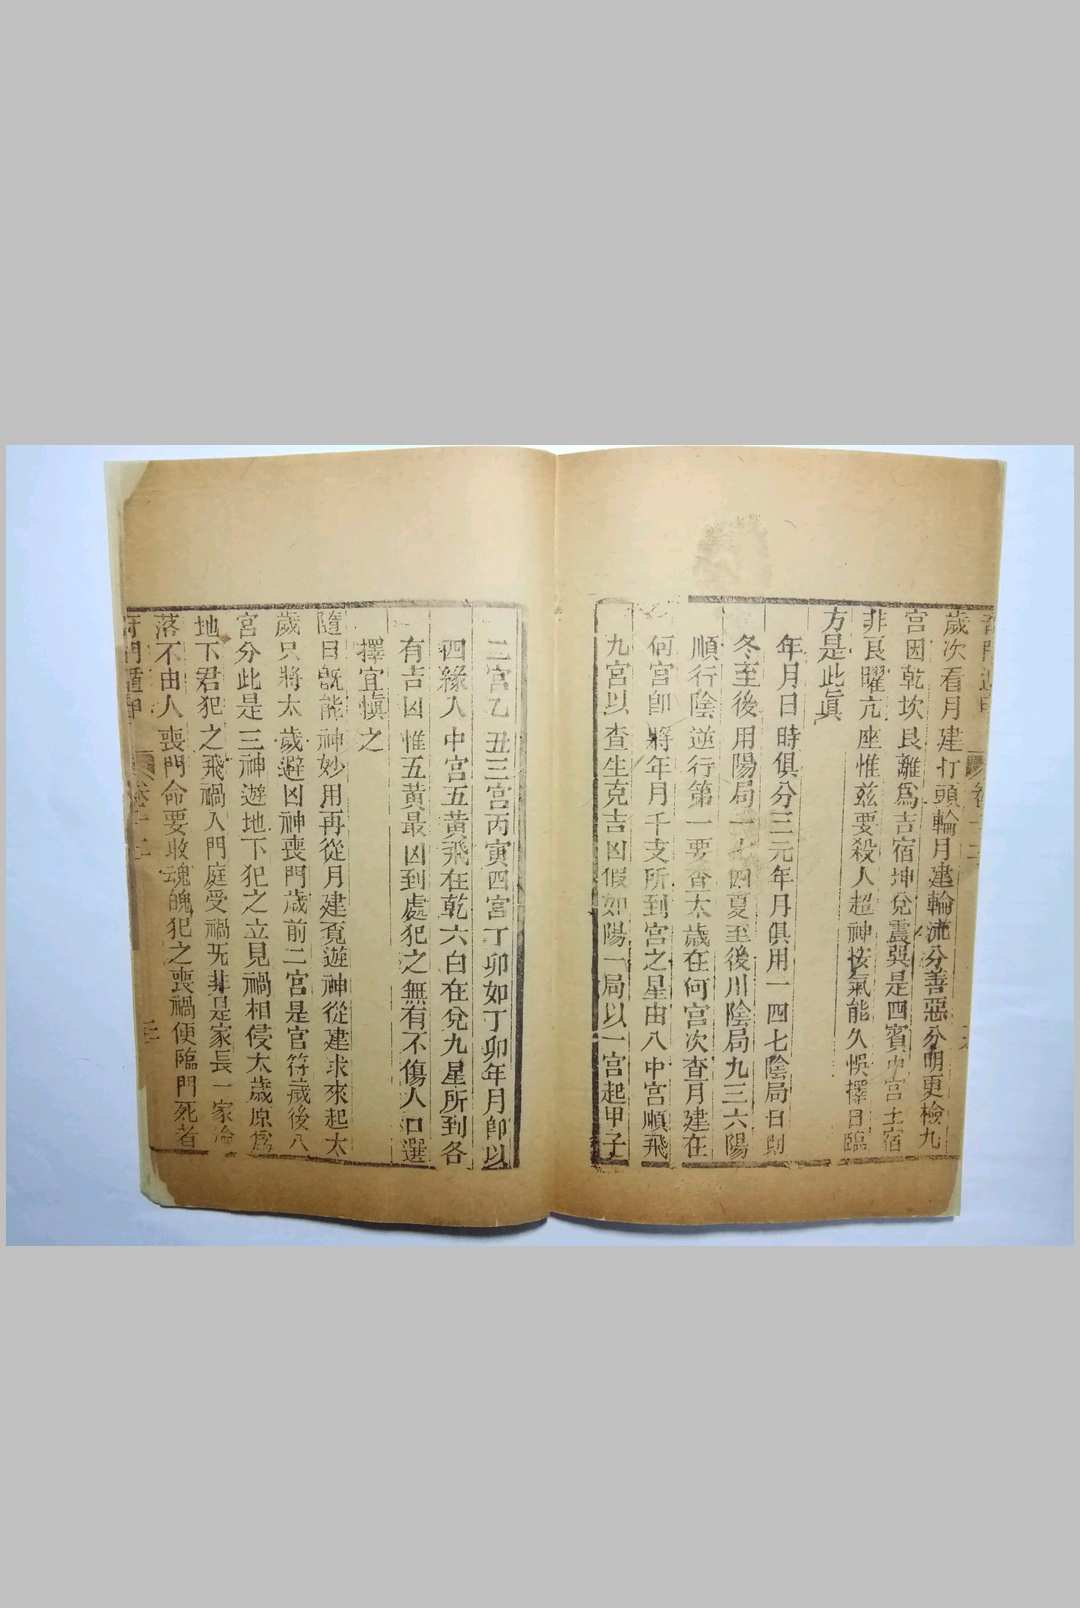 奇門遁甲 卷十二
歲次看月建打頭輪月建輪流分善惡分明更檢九
宮因乾坎艮離為吉宿坤兌震巽是四賓中宮土宿
非良曜亢座惟茲要殺人超神接氣能久悞擇日臨
方是此眞
年月日時俱分三元年月俱用一四七陰局日則
冬至後用陽局一七四夏至後用陰局九三六陽
順行陰逆行第一要查太歲在何宮次查月建在
何宮即將年月干支所到宮之星由入中宮順飛
九宮以查生克吉凶假如陽一局以一宮起甲子
二宮乙丑三宮丙寅四宮丁卯如丁卯年月即以
四緣入中宮五黃飛在乾六白在兌九星所到各
有吉凶惟五黃最凶到處犯之無有不傷人口選
擇宜慎之
隨日既能神妙用再從月建覓遊神從建求來起太
歲只將太歲避凶神喪門歲前二宮是官符歲後八
宮分此是三神遊地下犯之立見禍相侵太歲原為
地下君犯之飛禍入門庭受禍旡非是家長一家冷
落不由人喪門命要收魂魄犯之喪禍便臨門死者
奇門遁甲 卷十二